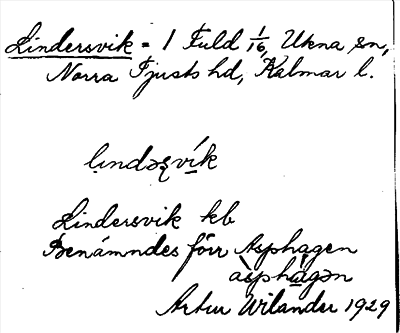 Lindersvik = 1 Fuld 1/16, Ukna sn,
Norra Tjusts hd, Kalmar l.
lindəʂvík
Lindersvik kb
Benämndes förr Asphagen
àsphagən
Artur Wilander 1929